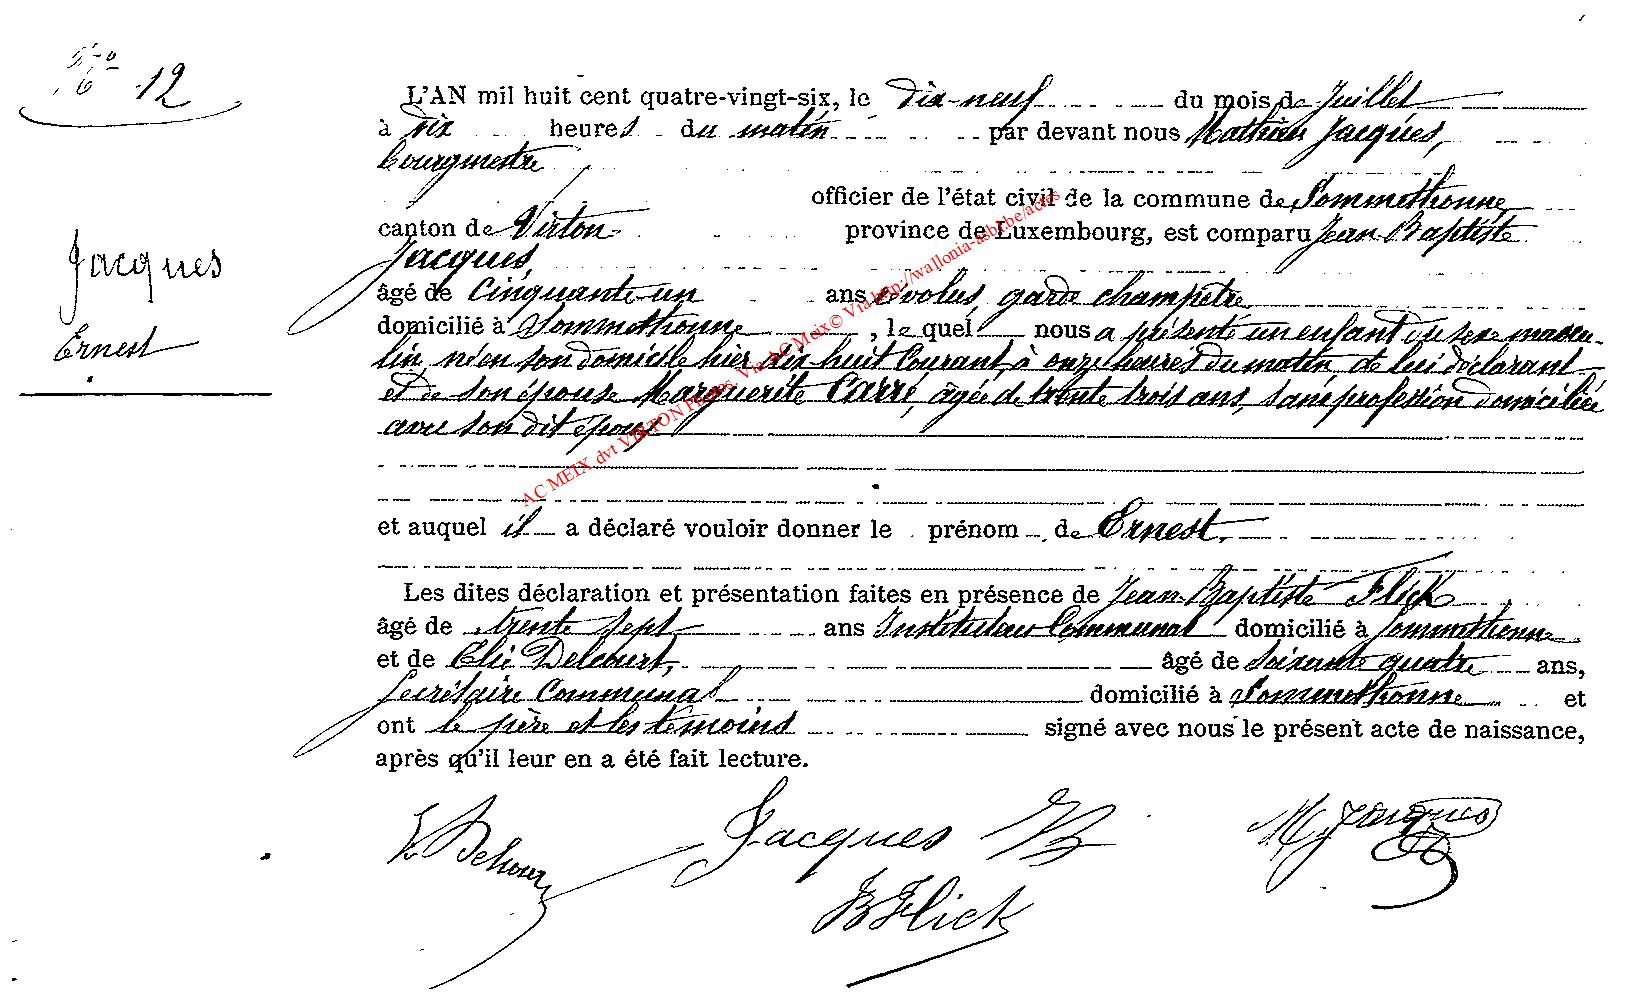 No 12
L'AN mil huit cent quatre-vingt-six, le dix-neuf du mois de Juillet
à dix heures du matin par devant nous Mathieu Jacques,
bourgmestre
officier de l'état civil de la commune de Sommethonne
canton de Virton province de Luxembourg, est comparu Jean Baptiste
Jacques
Jacques,
âgé de cinquante-un ans révolus, garde champêtre
Ernest
domicilié à Sommethonne, le quel nous a présenté un enfant du sexe mascu-
lin, né en son domicile hier dix-huit Courant, à onze heures du matin, de lui déclarant
et de son épouse Marguerite Carré, âgée de trente trois ans, sans profession domiciliée
avec son dit époux
AC MEIX dvt VIRTON Via AC Meix© Via http://wallonia-asbl.be/actes
et auquel il a déclaré vouloir donner le prénom de Ernest.
Les dites déclaration et présentation faites en présence de Jean-Baptiste Flick
âgé de trente sept ans Instituteur Communal domicilié à Sommethonne
et de Delcourt, âgé de soixante quatre ans,
Secrétaire Communal domicilié à Sommethonne et
ont le père et les témoins signé avec nous le présent acte de naissance,
après qu'il leur en a été fait lecture.
Jacques JB
M Jacques
JB Flick